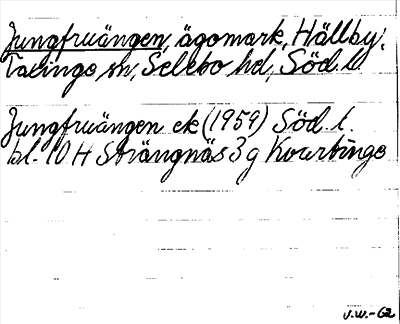 Jungfruängen, ägomark, Hällby,
Taxinge sn, Selebo hd, Söd. l.
Jungfruängen ek (1959) Söd. l.
bl. 10 H Strängnäs 3 g Kvartinge
J.W.-62